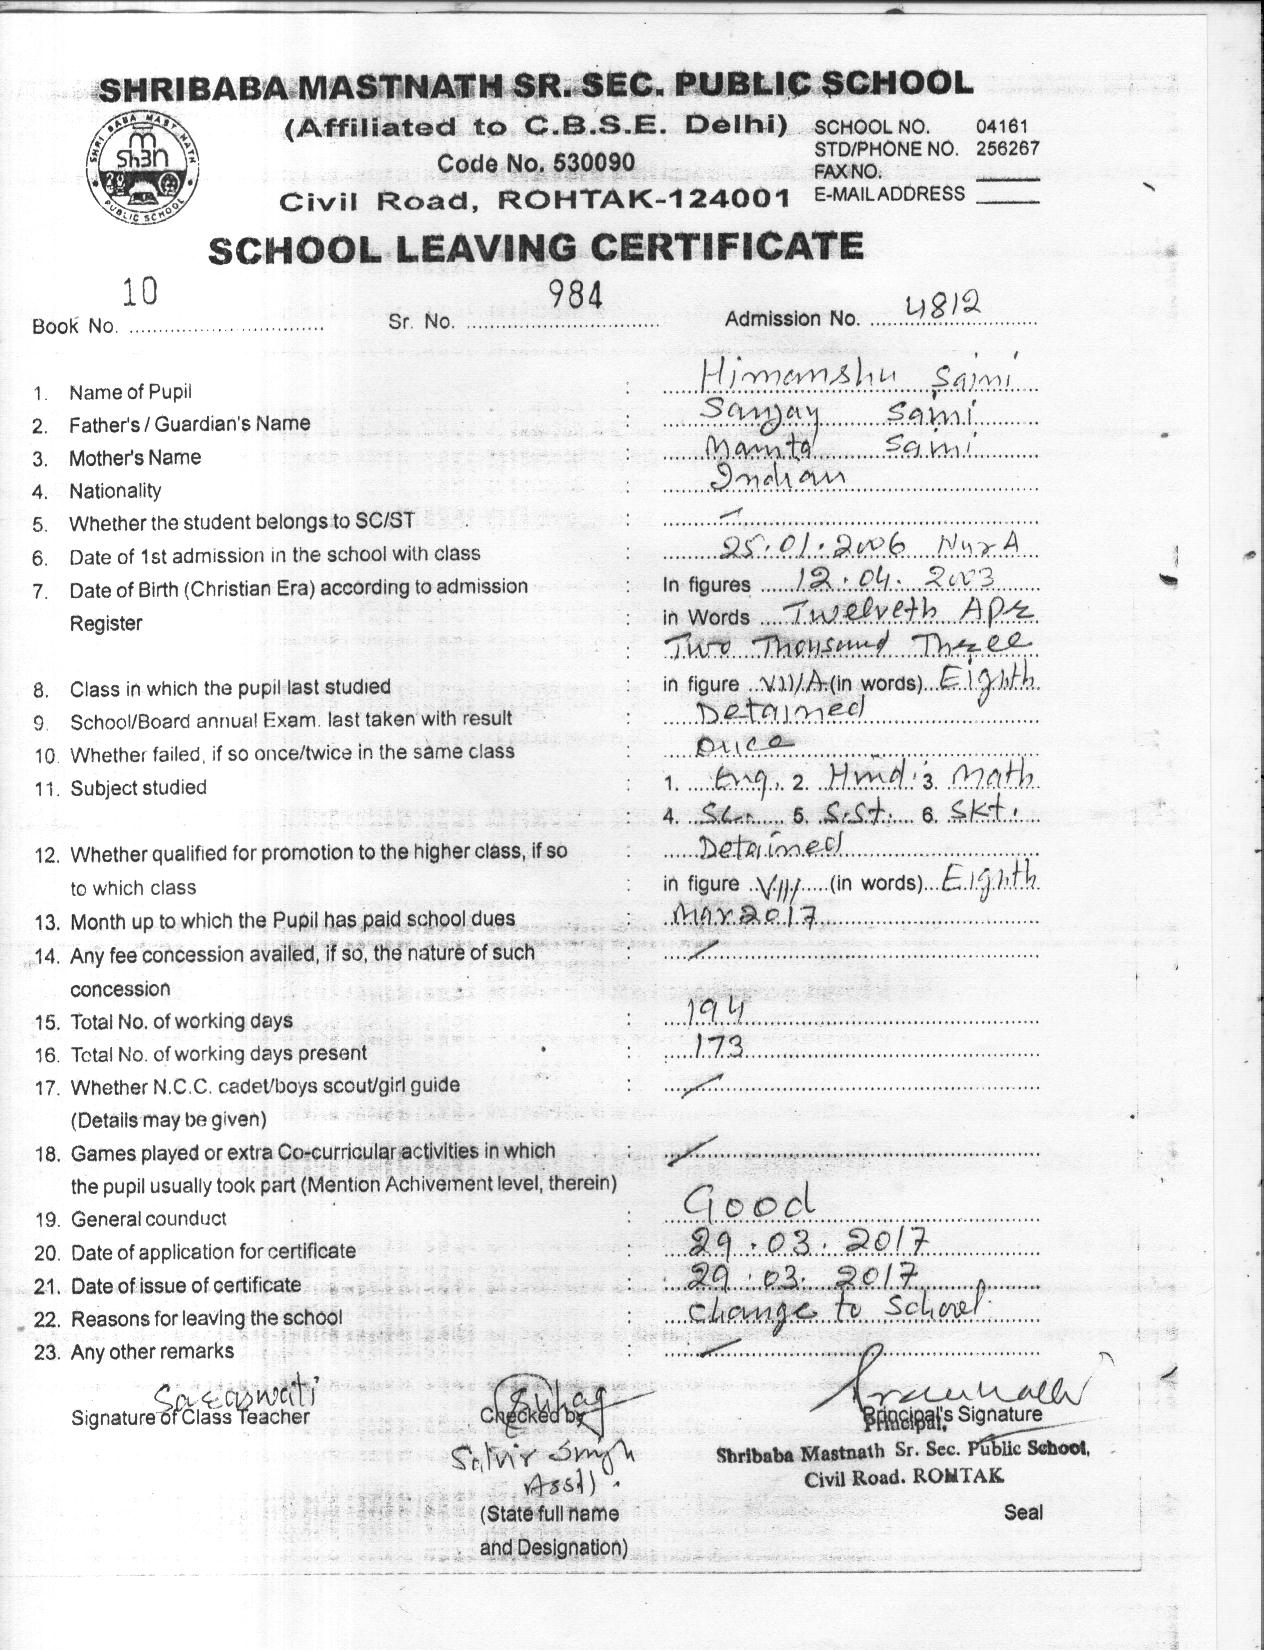 SHRIBABA MASTNATH SR. SEC. PUBLIC SCHOOL
SHRI BABA MAST NATH
PUBLIC SCHOOL
(Affiliated to C.B.S.E. Delhi)
Code No. 530090
Civil Road, ROHTAK-124001
SCHOOL NO. 04161
STD/PHONE NO. 256267
FAX NO.
E-MAIL ADDRESS
SCHOOL LEAVING CERTIFICATE
Book No. 10 Sr. No. 984 Admission No. 4812
1. Name of Pupil : Himanshu Saini
2. Father's / Guardian's Name : Sanjay Saini
3. Mother's Name : Mamta Saini
4. Nationality : Indian
5. Whether the student belongs to SC/ST : -
6. Date of 1st admission in the school with class : 25.01.2006 Nur A
7. Date of Birth (Christian Era) according to admission : In figures 12.04.2003
Register : in Words Twelveth Apr
: Two Thousand Three
8. Class in which the pupil last studied : in figure VIII/A (in words) Eighth
9. School/Board annual Exam. last taken with result : Detained
10. Whether failed, if so once/twice in the same class : Once
11. Subject studied : 1. Eng. 2. Hindi 3. Math
: 4. Sc. 5. S.St. 6. Skt.
12. Whether qualified for promotion to the higher class, if so : Detained
to which class : in figure VIII (in words) Eighth
13. Month up to which the Pupil has paid school dues : Mar 2017
14. Any fee concession availed, if so, the nature of such :
concession
15. Total No. of working days : 194
16. Total No. of working days present : 173
17. Whether N.C.C. cadet/boys scout/girl guide :
(Details may be given)
18. Games played or extra Co-curricular activities in which :
the pupil usually took part (Mention Achivement level, therein)
19. General counduct : Good
20. Date of application for certificate : 29.03.2017
21. Date of issue of certificate : 29.03.2017
22. Reasons for leaving the school : Change to School
23. Any other remarks :
Saraswati
Signature of Class Teacher Checked by Principal's Signature
Principal,
Shribaba Mastnath Sr. Sec. Public School,
Civil Road. ROHTAK
Singh
(State full name Seal
and Designation)